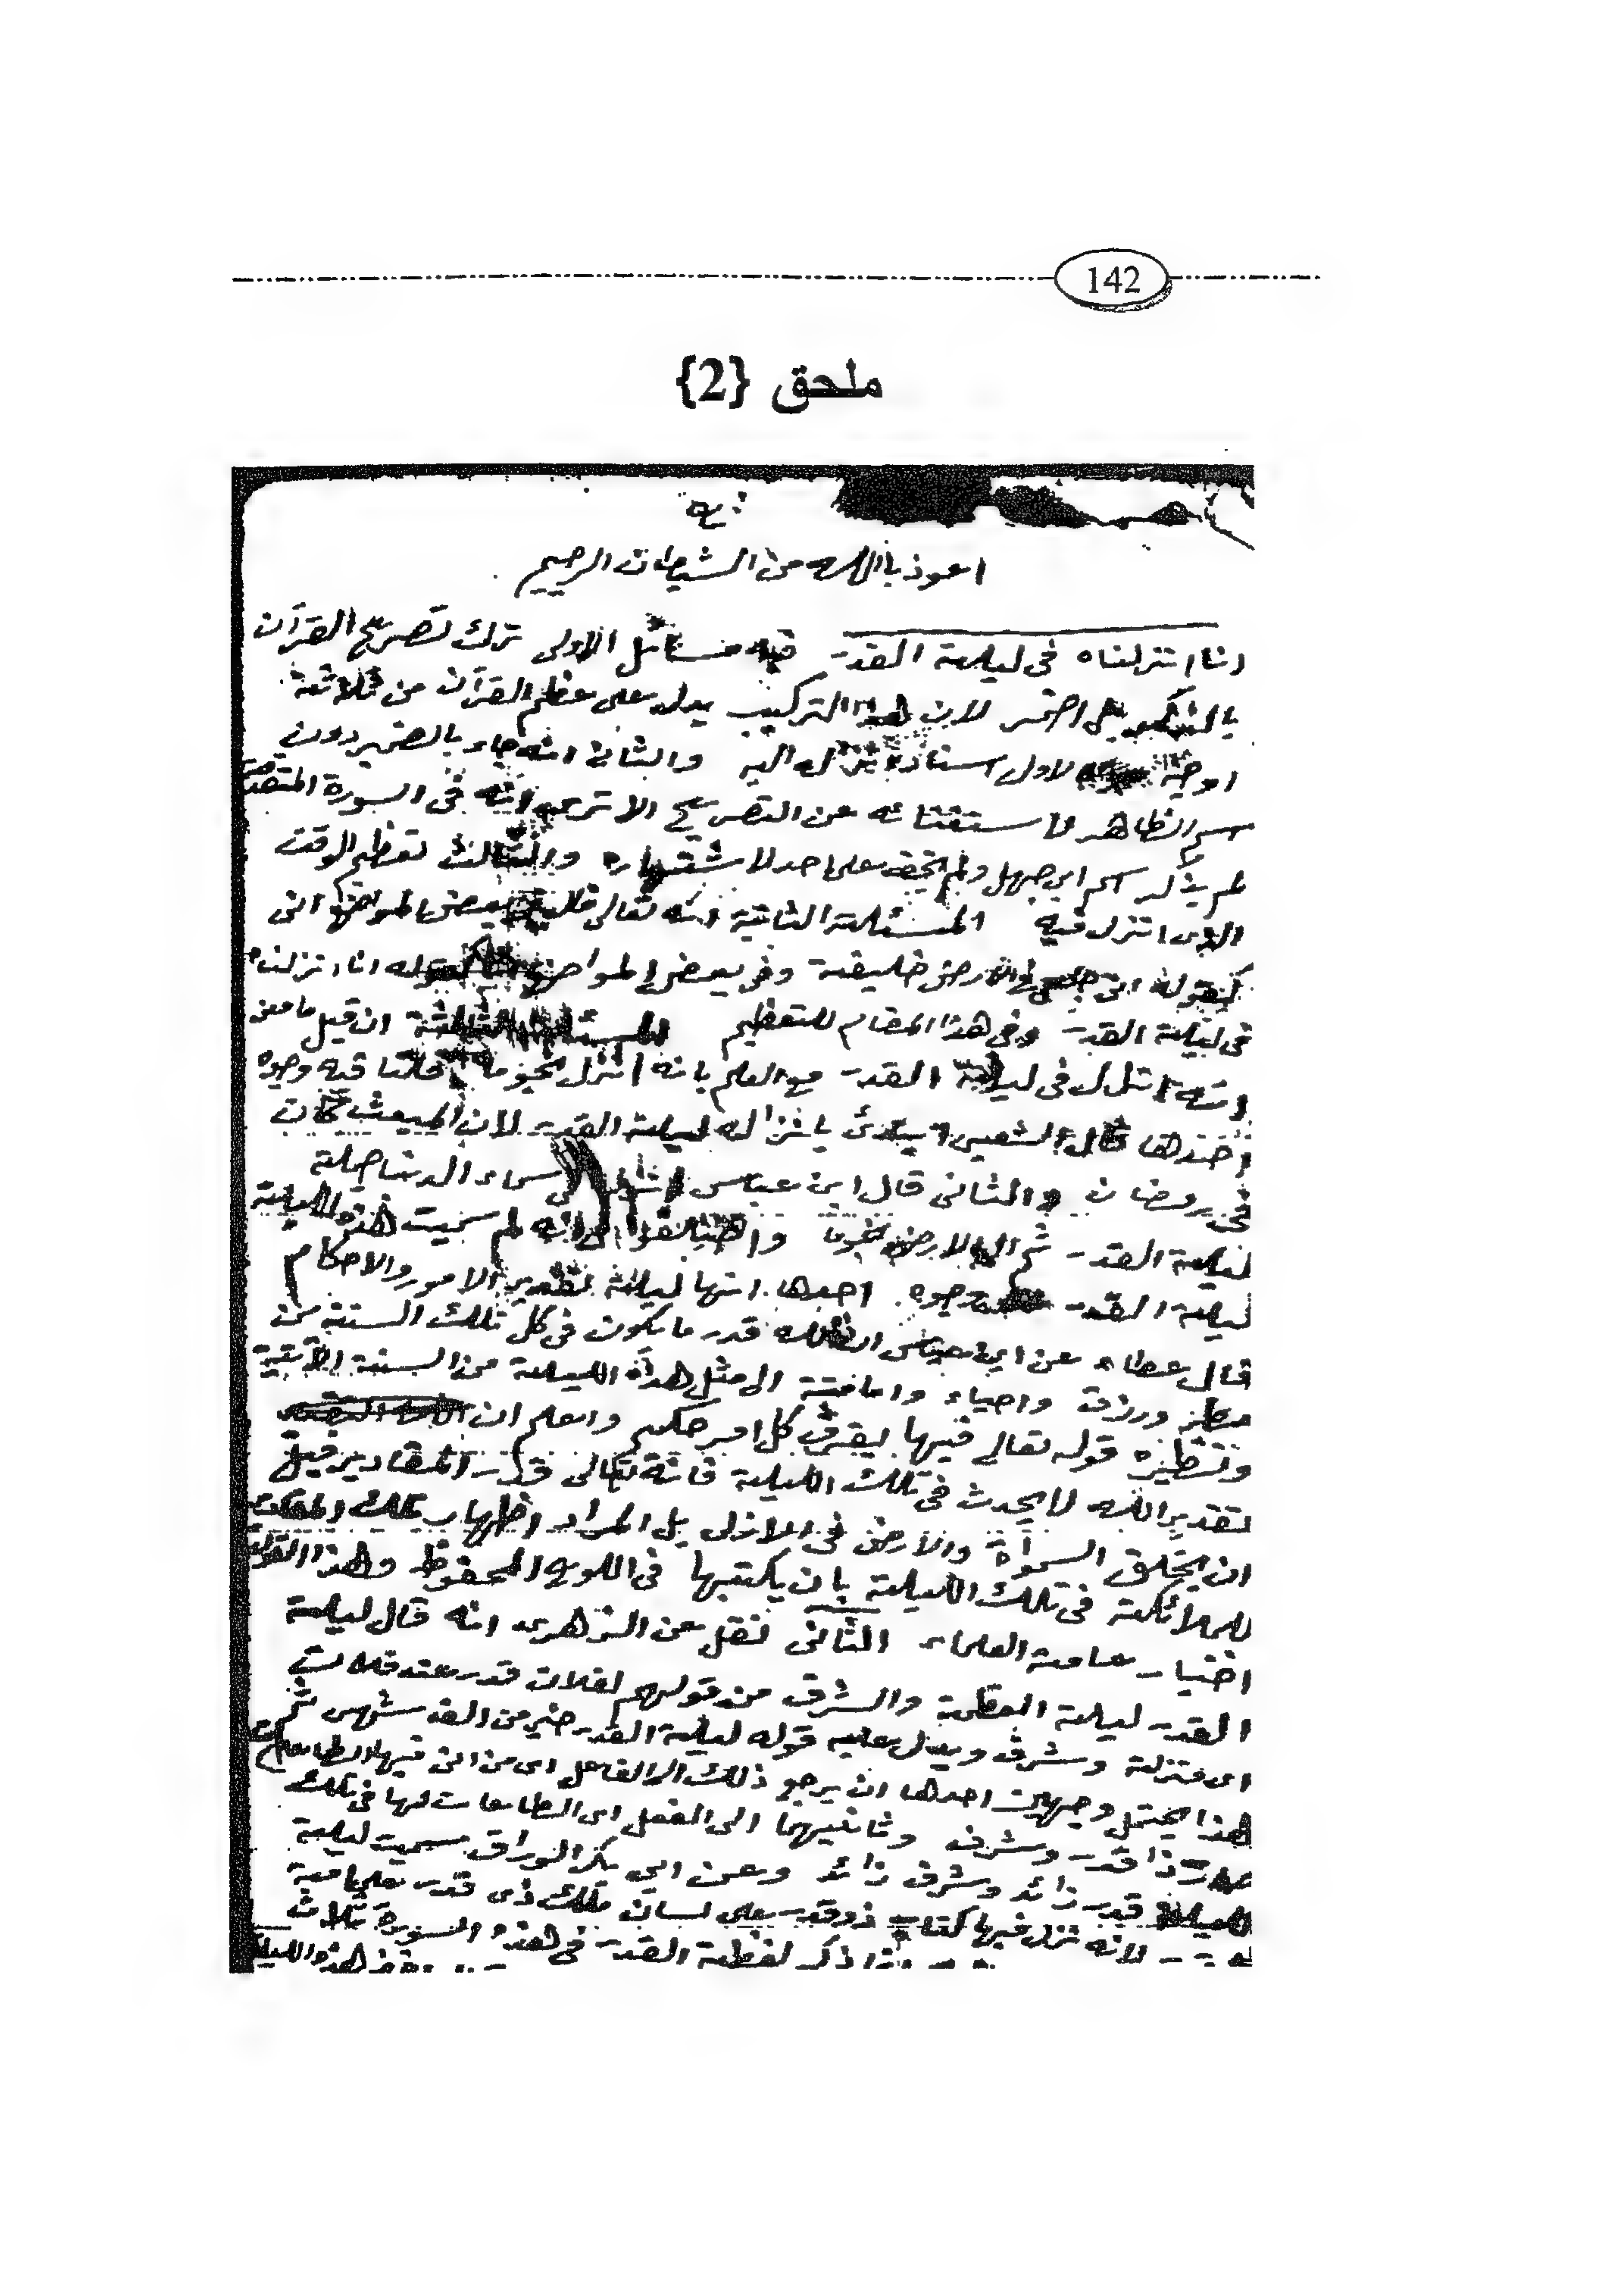 142
ملحق {2}
اعوذ بالله من الشيطان الرجيم
انا انزلناه فى ليلة القدر فيه مسائل الاولى ترك تصريح القرآن
بل اضمر لان هذا التركيب يدل على عظم القرآن من ثلاثة
اوجه الاول اسناد اليه والثانى انه جاء بالضمير دون
اسم الظاهر استغنائه عن التصريح الا ترى انه فى السورة المتقدمة
لم يذكر اسم ابى جهل ولم يخف على احد لاشتهاره والثالث تعظيم الوقت
الذى انزل فيه المسئلة الثانية انه تعالى بعض المواضع انى
كقوله انى جاعل فى الارض خليفة وفى بعض المواضع كقوله انا انزلناه
فى ليلة القدر وفى هذا المقام للتعظيم المسئلة الثالثة ان قيل ما معنى
انه انزل فى ليلة القدر مع العلم بانه انزل نجوما قلنا فيه وجوه
احدها قال الشعبى ابتدئ بانزاله ليلة القدر لان المبعث كان
فى رمضان والثانى قال ابن عباس انزل الى سماء الدنيا جملة
ليلة القدر ثم الى الارض نجوما واختلفوا فى انه لم سميت هذه الليلة
ليلة القدر وجوه احدها انها ليلة تقدير الامور والاحكام
قال عطاء عن ابن عباس ان الله قدر ما يكون فى كل تلك السنة من
مطر ورزق واحياء واماتة الى مثل هذه الليلة من السنة الآتية
ونظيره قوله تعالى فيها يفرق كل امر حكيم واعلم ان
تقدير الله لا يحدث فى تلك الليلة فانه تعالى قدر المقادير قبل
ان يخلق السموات والارض فى الازل بل المراد اظهار تلك
للملائكة فى تلك الليلة بان يكتبها فى اللوح المحفوظ وهذا القول
اختيار عامة العلماء الثانى نقل عن الزهرى انه قال ليلة
القدر ليلة العظمة والشرف من قولهم لفلان قدر عند فلان
اى منزلة وشرف ويدل عليه قوله ليلة القدر خير من الف شهر ثم
هذا يحتمل وجهين احدها ان يرجع ذلك الى الفاعل اى من اتى فيها بالطاعات
صار ذا قدر وشرف وثانيهما الى الفعل اى الطاعات لها فى تلك
الليلة قدر زائد وشرف زائد وعن ابى بكر الوراق سميت ليلة
لانه نزل فيها كتاب ذو قدر على لسان ملك ذى قدر على امة
ذكر لفظة القدر فى هذه السورة ثلاث هذه الليلة